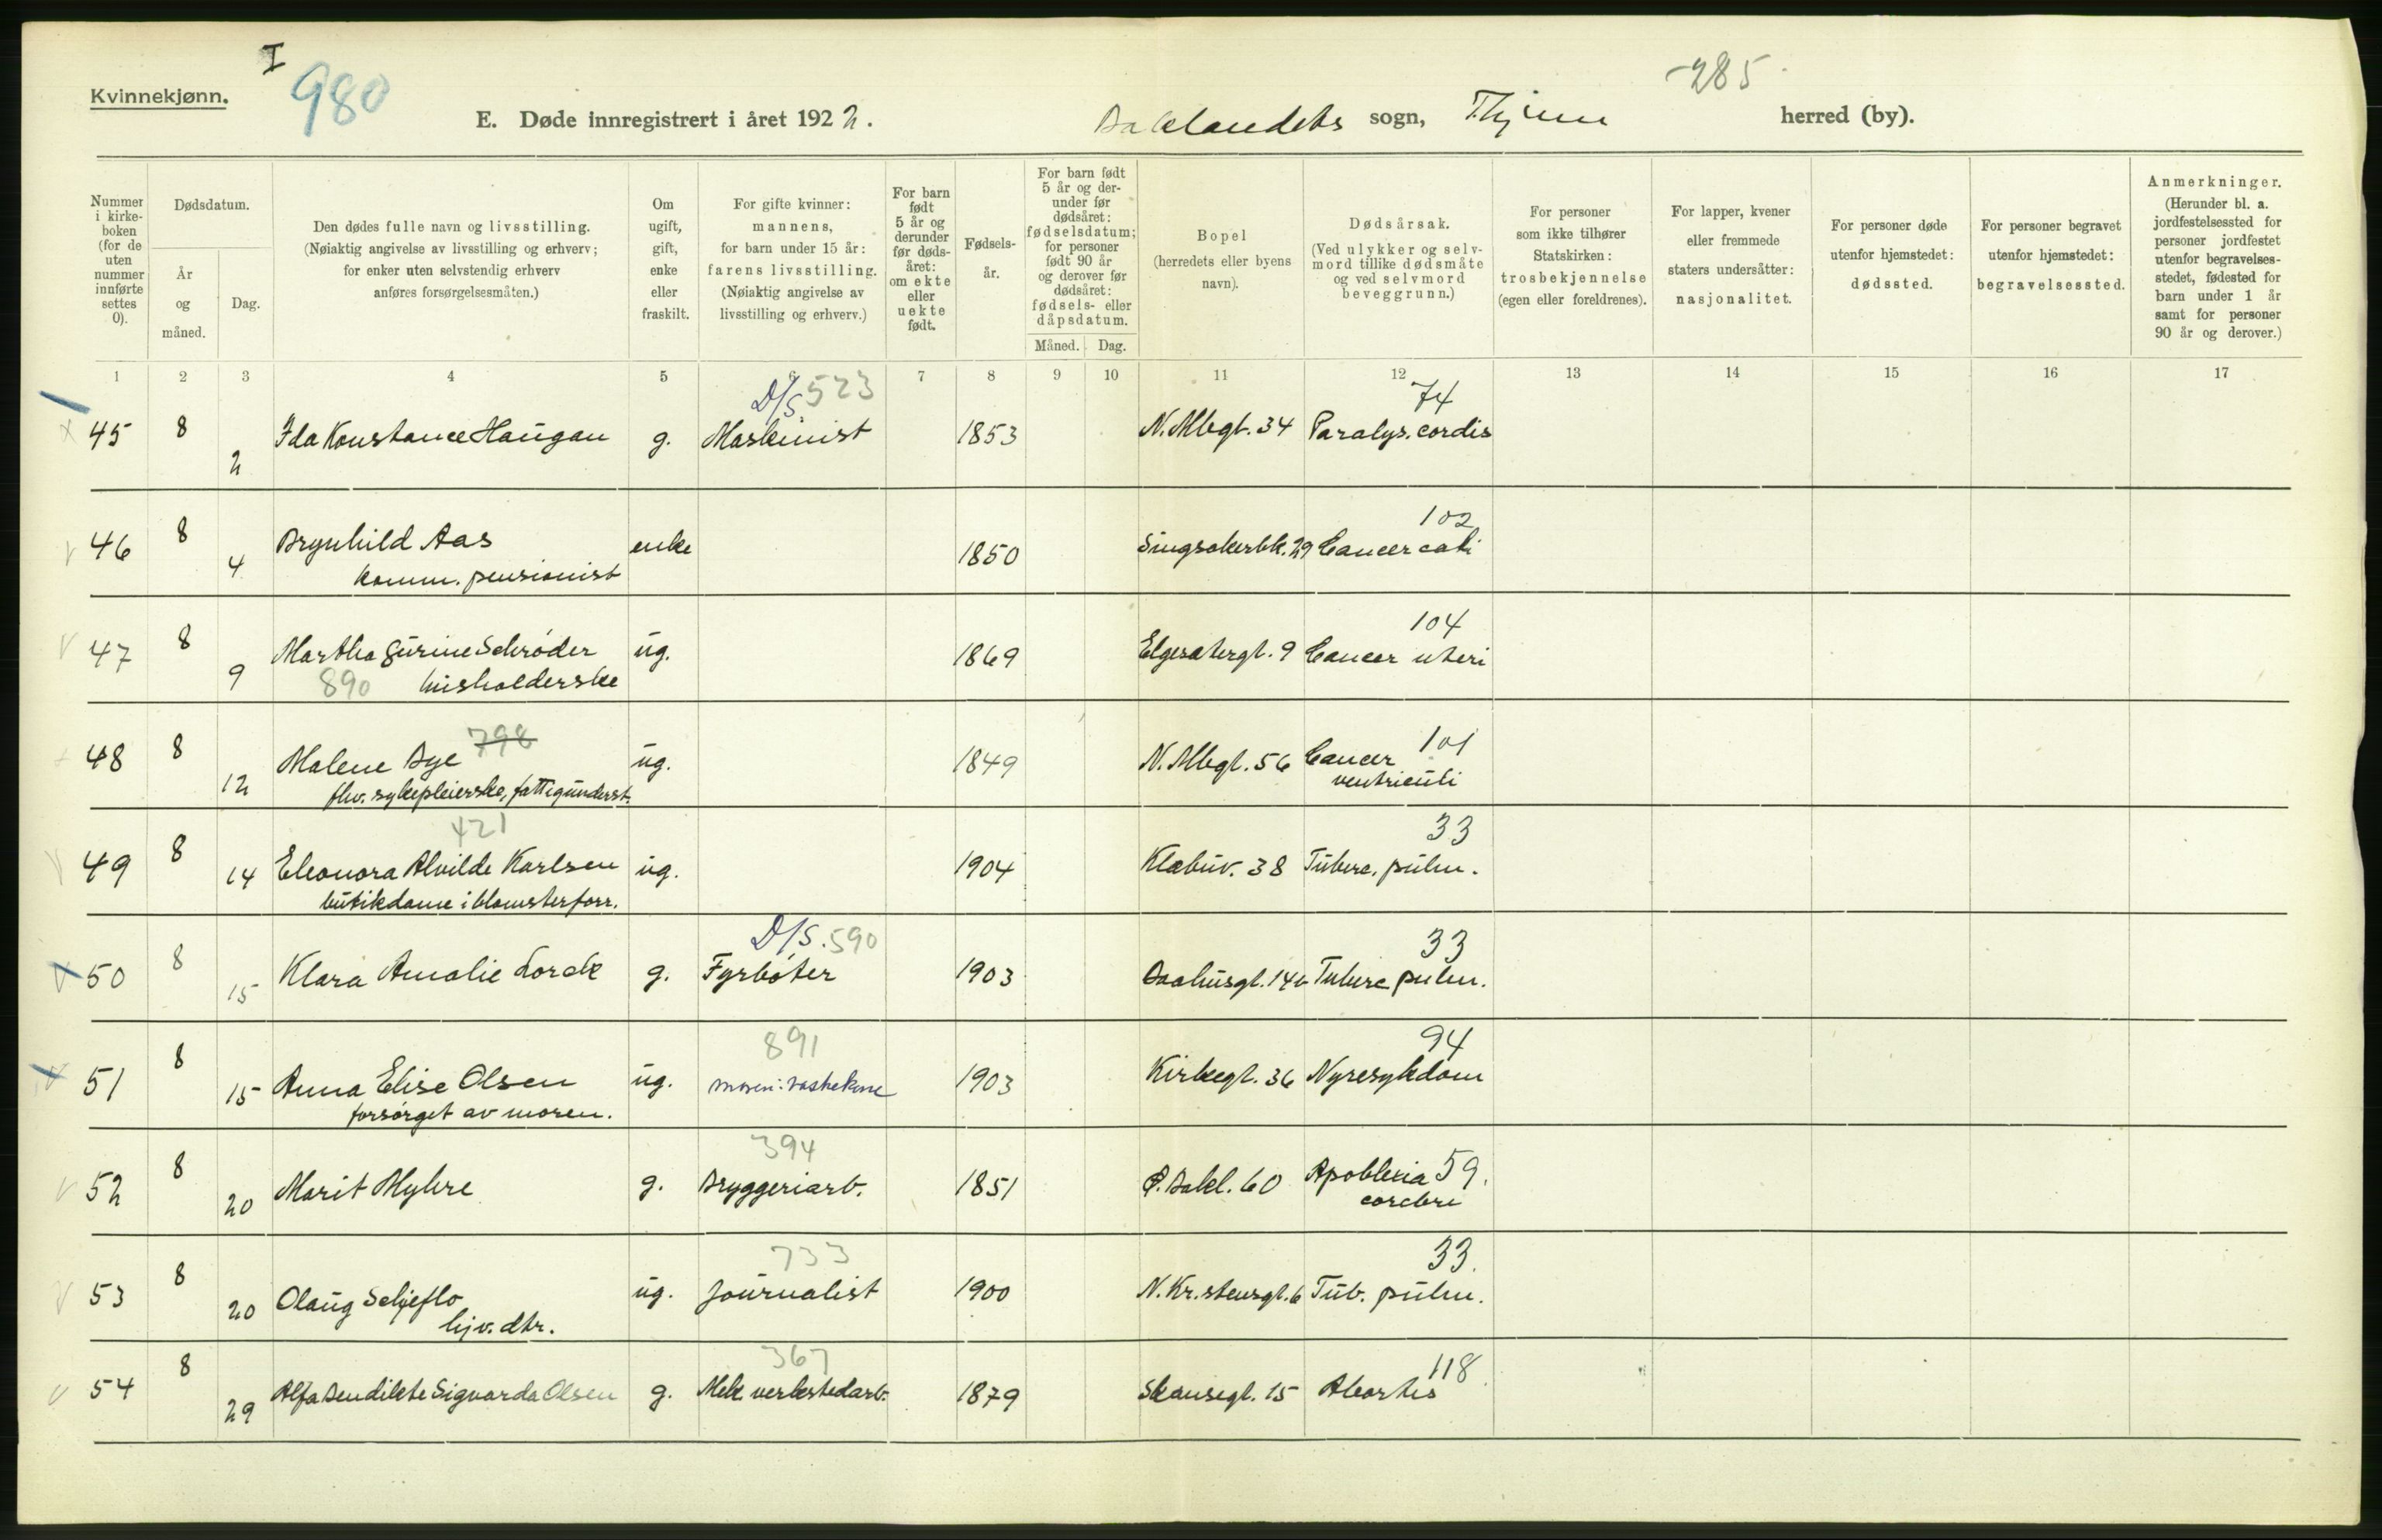 I
980
-285
Kvinnekjønn.
E. Døde innregistrert i året 1922. Baklandets sogn, Thjem herred (by).
Nummer i kirke- boken (for de uten nummer innførte settes 0).
Dødsdatum.
År og måned.
Dag.
Den dødes fulle navn og livsstilling.
(Nøiaktig angivelse av livsstilling og erhverv;
for enker uten selvstendig erhverv
anføres forsørgelsesmåten.)
Om ugift, gift, enke eller fraskilt.
For gifte kvinner: mannens, for barn under 15 år: farens livsstilling. (Nøiaktig angivelse av livsstilling og erhverv.)
For barn født 5 år og derunder før døds- året: om ekte eller uekte født.
Fødsels- år.
For barn født 5 år og der- under før dødsåret: fødselsdatum; for personer født 90 år og derover før dødsåret: fødsels- eller dåpsdatum.
Måned. Dag.
Bopel (herredets eller byens navn).
Dødsårsak. (Ved ulykker og selv- mord tillike dødsmåte og ved selvmord beveggrunn.)
For personer som ikke tilhører Statskirken: trosbekjennelse (egen eller foreldrenes).
For lapper, kvener eller fremmede staters undersåtter: nasjonalitet.
For personer døde utenfor hjemstedet: dødssted.
For personer begravet utenfor hjemstedet: begravelsessted.
Anmerkninger. (Herunder bl. a. jordfestelsessted for personer jordfestet utenfor begravelses- stedet, fødested for barn under 1 år samt for personer 90 år og derover.)
1 2 3 4 5 6 7 8 9 10 11 12 13 14 15 16 17
D/S 523 74
45 8 2 Ida Konstance Haugan g. Maskinist 1853 N. Allegt. 34 Paralys. cordis
102
46 8 4 Brynhild Aas enke 1850 Singsakerbk. 29 Cancer coli
komm. pensionist
104
47 8 9 Martha Gurine Schrøder ug. 1869 Elgesetergt. 9 Cancer uteri
890 husholderske
798 101
48 8 12 Malene Bye ug. 1849 N. Allegt. 56 Cancer
fhv. sykepleierske, fattigunderst. ventriculi
421 33
49 8 14 Eleonora Alvilde Karlsen ug. 1904 Klæbuv. 38 Tuberc. pulm.
butikdame i blomsterforr.
D/S. 590 33
50 8 15 Klara Amalie Lorck g. Fyrbøter 1903 14b Tuberc pulm.
891 94
51 8 15 Anna Elise Olsen ug. moren: vaskekone 1903 Kirkegt. 36 Nyresykdom
forsørget av moren.
394
52 8 20 Marit Myhre g. Bryggeriarb. 1851 Ø. Bakl. 60 Apoblexia 59.
cerebri
733 33.
53 8 20 Olaug Schjeflo ug. journalist 1900 N. Kr.stensgt. 6 Tub. pulm.
hjv. dtr.
367 118
54 8 29 Alfa Bendikte Sigvarda Olsen g. Mek. verkstedarb. 1879 Skansegt. 15 Abortus